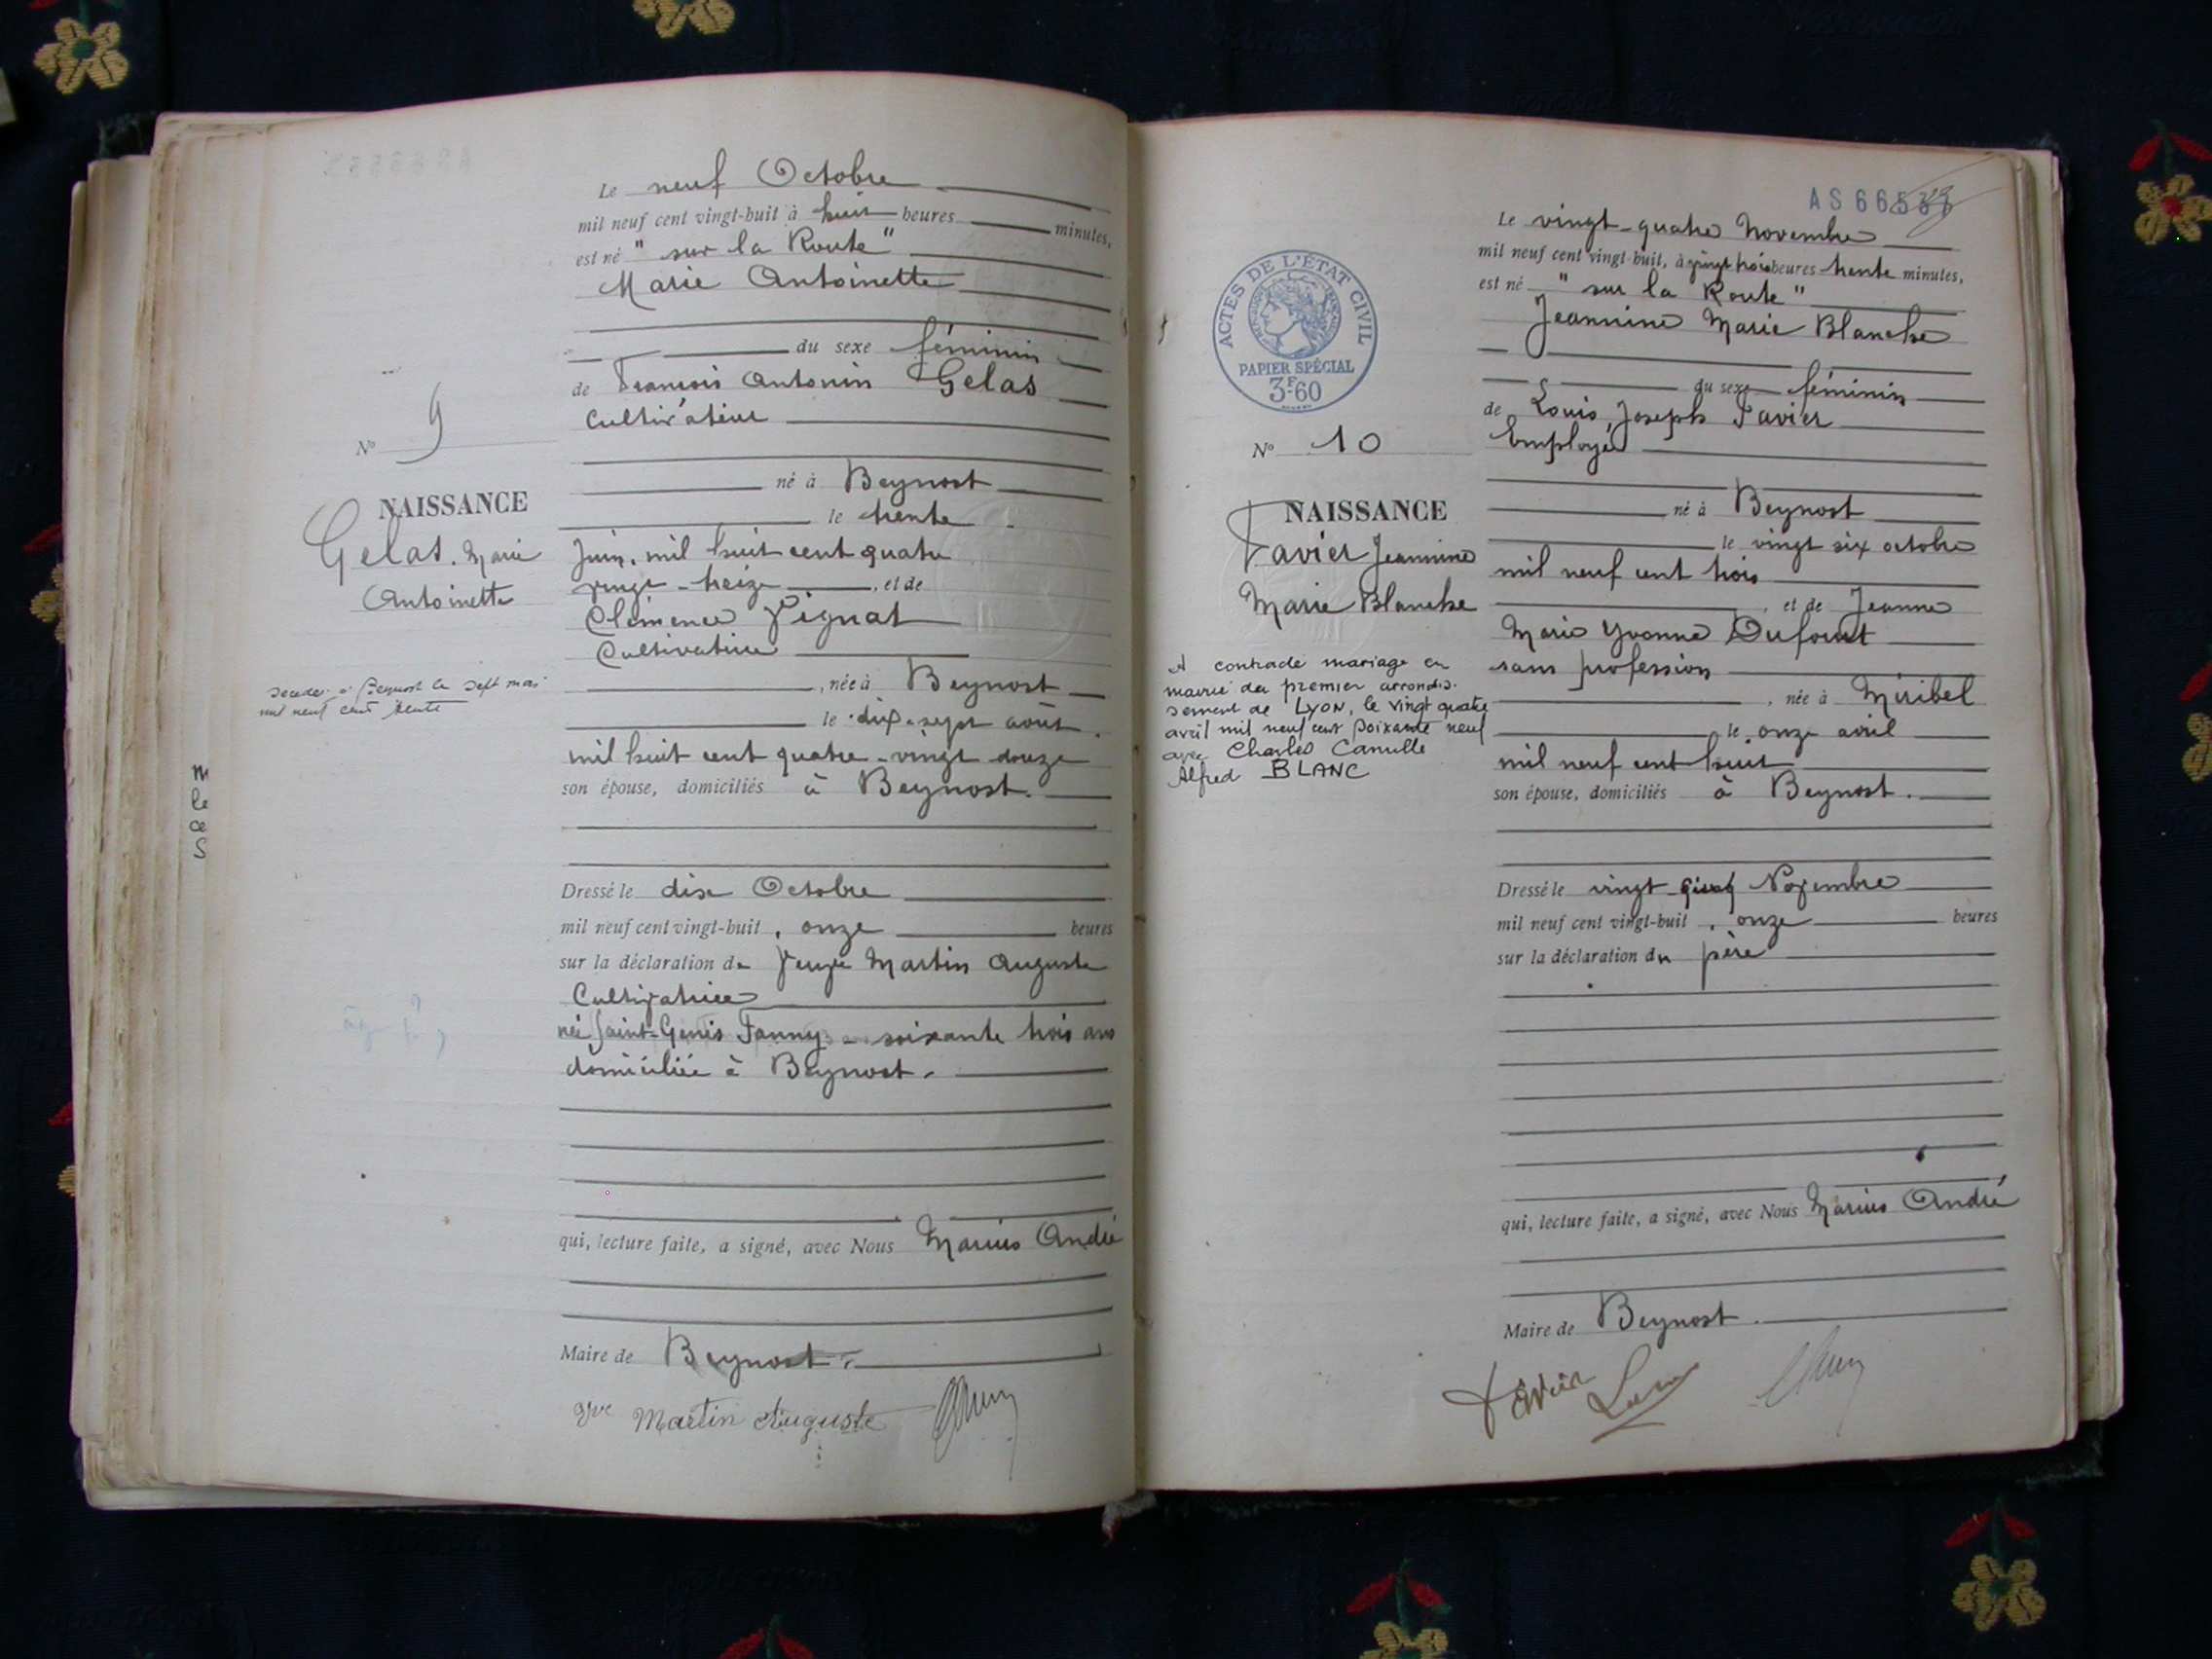 Le neuf Octobre
mil neuf cent vingt-huit à huit heures minutes,
est né "sur la Route"
Marie Antoinette
du sexe féminin
de François Antonin Gelas
Cultivateur
N° 9
né à Beynost
NAISSANCE
le trente
Gelas. Marie
Antoinette
Juin, mil huit cent quatre
vingt-treize, et de
Clémence Pignat
Cultivatrice
, née à Beynost
décédée à Beynost le sept mai
mil neuf cent trente
le dix-sept août
mil huit cent quatre-vingt douze
son épouse, domiciliés à Beynost.
m
le
ce
S
Dressé le dix Octobre
mil neuf cent vingt-huit, onze heures
sur la déclaration de Veuve Martin Auguste
Cultivatrice
née Saint-Genis Fanny - soixante trois ans
domiciliée à Beynost.
qui, lecture faite, a signé, avec Nous Marius André
Maire de Beynost
Vve Martin Auguste
AS 665
Le vingt-quatre Novembre
mil neuf cent vingt-huit, à vingt trois heures trente minutes,
est né "sur la Route"
Jeannine Marie Blanche
du sexe féminin
de Louis Joseph Favier
Employé
ACTES DE L'ÉTAT CIVIL
PAPIER SPÉCIAL
3F60
N° 10
né à Beynost
NAISSANCE
Favier Jeannine
Marie Blanche
le vingt six octobre
mil neuf cent trois
, et de Jeanne
Marie Yvonne Dufour
sans profession
, née à Miribel
A contracté mariage en
mairie du premier arrondis-
sement de LYON, le vingt quatre
avril mil neuf cent soixante neuf
avec Charles Camille
Alfred BLANC
le onze avril
mil neuf cent huit
son épouse, domiciliés à Beynost.
Dressé le vingt-cinq Novembre
mil neuf cent vingt-huit, onze heures
sur la déclaration du père
qui, lecture faite, a signé, avec Nous Marius André
Maire de Beynost.
Favier